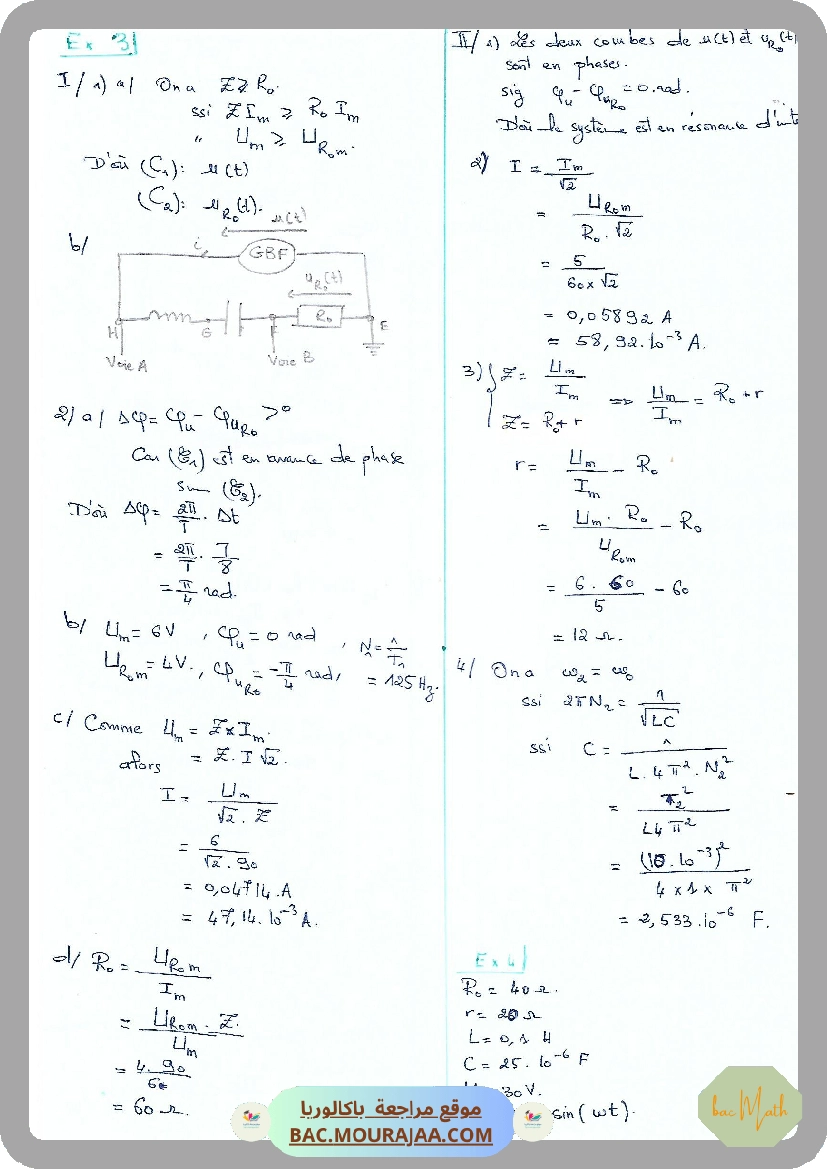 Ex 3
I/ 1) a/ On a Z ≥ R₀.
ssi Z Im ≥ R₀ Im
" Um ≥ UR₀m.
D'où (C₁): u(t)
(C₂): uR₀(t).
b/
u(t)
i
GBF
uR₀(t)
R₀
H
G
F
E
Voie A
Voie B
2/ a/ Δφ = φu - φuR₀ > 0
Car (C₁) est en avance de phase
sur (C₂).
D'où Δφ = 2π/T . Δt
= 2π/T . T/8
= π/4 rad.
b/ Um = 6V , φu = 0 rad , N₁ = 1/T₁
UR₀m = 4V. , φuR₀ = -π/4 rad, = 125 Hz.
c/ Comme Um = Z x Im.
alors = Z . I √2.
I = Um / √2 . Z
= 6 / √2 . 90
= 0,04714 . A
= 47,14. 10⁻³ A.
d/ R₀ = UR₀m / Im
= UR₀m . Z / Um
= 4. 90 / 6
= 60 Ω.
II/ 1) Les deux courbes de u(t) et uR₀(t)
sont en phases.
sig φu - φuR₀ = 0 rad.
D'où le système est en résonance d'inte
2) I = Im / √2
= UR₀m / R₀ . √2
= 5 / 60 x √2
= 0,05892 A
= 58,92. 10⁻³ A.
3) Z = Um / Im
Z = R₀ + r
⟹ Um / Im = R₀ + r
r = Um / Im - R₀
= Um . R₀ / UR₀m - R₀
= 6 . 60 / 5 - 60
= 12 Ω.
4/ On a ω₂ = ω₀
ssi 2πN₂ = 1 / √LC
ssi C = 1 / L . 4π² . N₂²
= T₂² / L4π²
= (10 . 10⁻³)² / 4 x 1 x π²
= 2,533 . 10⁻⁶ F.
Ex 4
R₀ = 40 Ω.
r = 20 Ω
L = 0,1 H
C = 25. 10⁻⁶ F
= 30V.
sin(ωt).
موقع مراجعة باكالوريا
BAC.MOURAJAA.COM
bac Math